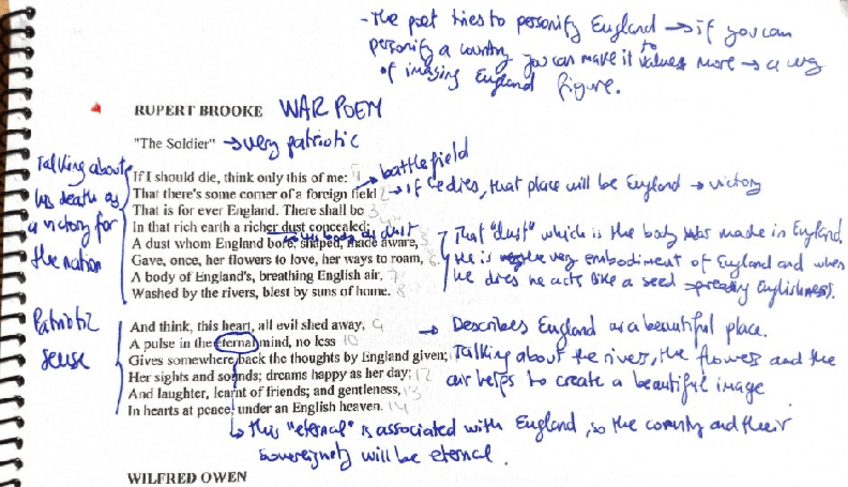 - The poet tries to personify England → if you can
personify a country you can make it to values more → a way
of imaging England figure.
RUPERT BROOKE WAR POEM
"The Soldier" → very patriotic
Talking about
his death as
a victory for
the nation
If I should die, think only this of me: 1
→ battlefield
That there's some corner of a foreign field 2 → if he dies, that place will be England → victory
That is for ever England. There shall be 3
In that rich earth a richer dust concealed; 4
→ his body as dust
A dust whom England bore, shaped, made aware, 5
Gave, once, her flowers to love, her ways to roam, 6
A body of England's, breathing English air, 7
Washed by the rivers, blest by suns of home. 8
That "dust" which is the body was made in England.
He is the very embodiment of England and when
he dies he acts like a seed → Englishness.
Patriotic
sense
And think, this heart, all evil shed away, 9
A pulse in the eternal mind, no less 10
Gives somewhere back the thoughts by England given; 11
Her sights and sounds; dreams happy as her day; 12
And laughter, learnt of friends; and gentleness, 13
In hearts at peace, under an English heaven. 14
→ Describes England as a beautiful place.
Talking about the rivers, the flowers and the
air helps to create a beautiful image
↳ this "eternal" is associated with England, so the country and their
sovereignety will be eternal.
WILFRED OWEN